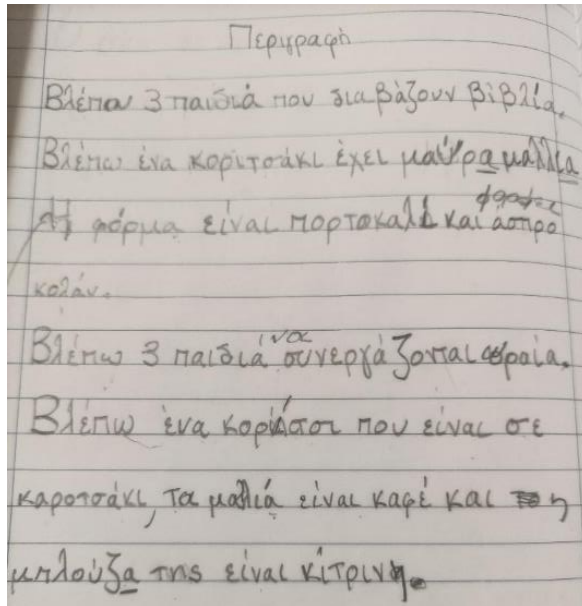 Περιγραφή
Βλέπω 3 παιδιά που διαβάζουν βιβλία.
Βλέπω ένα κοριτσάκι έχει μαύρα μαλλιά
φοράει
Η φόρμα είναι πορτοκαλί και άσπρο
κολάν.
να
Βλέπω 3 παιδιά συνεργάζονται ωραία.
Βλέπω ένα κορίτσι που είναι σε
καροτσάκι, τα μαλλιά είναι καφέ και η
μπλούζα της είναι κίτρινη.